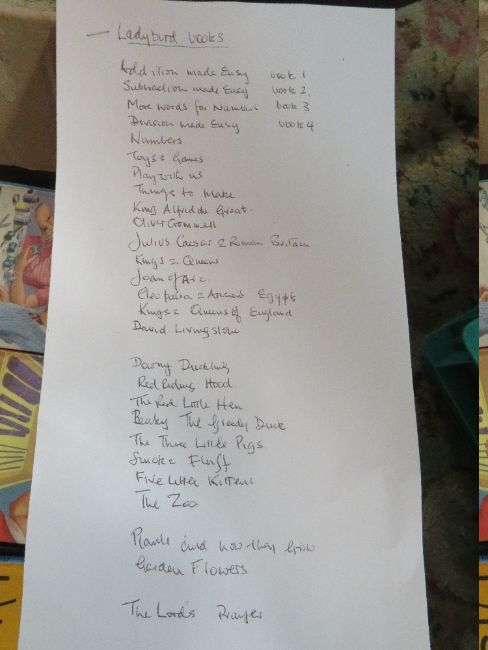 — Ladybird books
Addition made Easy book 1
Subtraction made Easy book 2.
More words for Number book 3
Division made Easy book 4
Numbers
Toys & Games
Play with us
Things to Make
King Alfred the Great.
Oliver Cromwell
Julius Caesar & Roman Britain
Kings & Queens
Joan of Arc
Cleopatra & Ancient Egypt
Kings & Queens of England
David Livingstone
Downy Duckling
Red Riding Hood.
The Red Little Hen
Beaky The Greedy Duck
The Three Little Pigs.
Fluff
Five Little Kittens
The Zoo
Plants and how they Grow
Garden Flowers
The Lord's Prayer